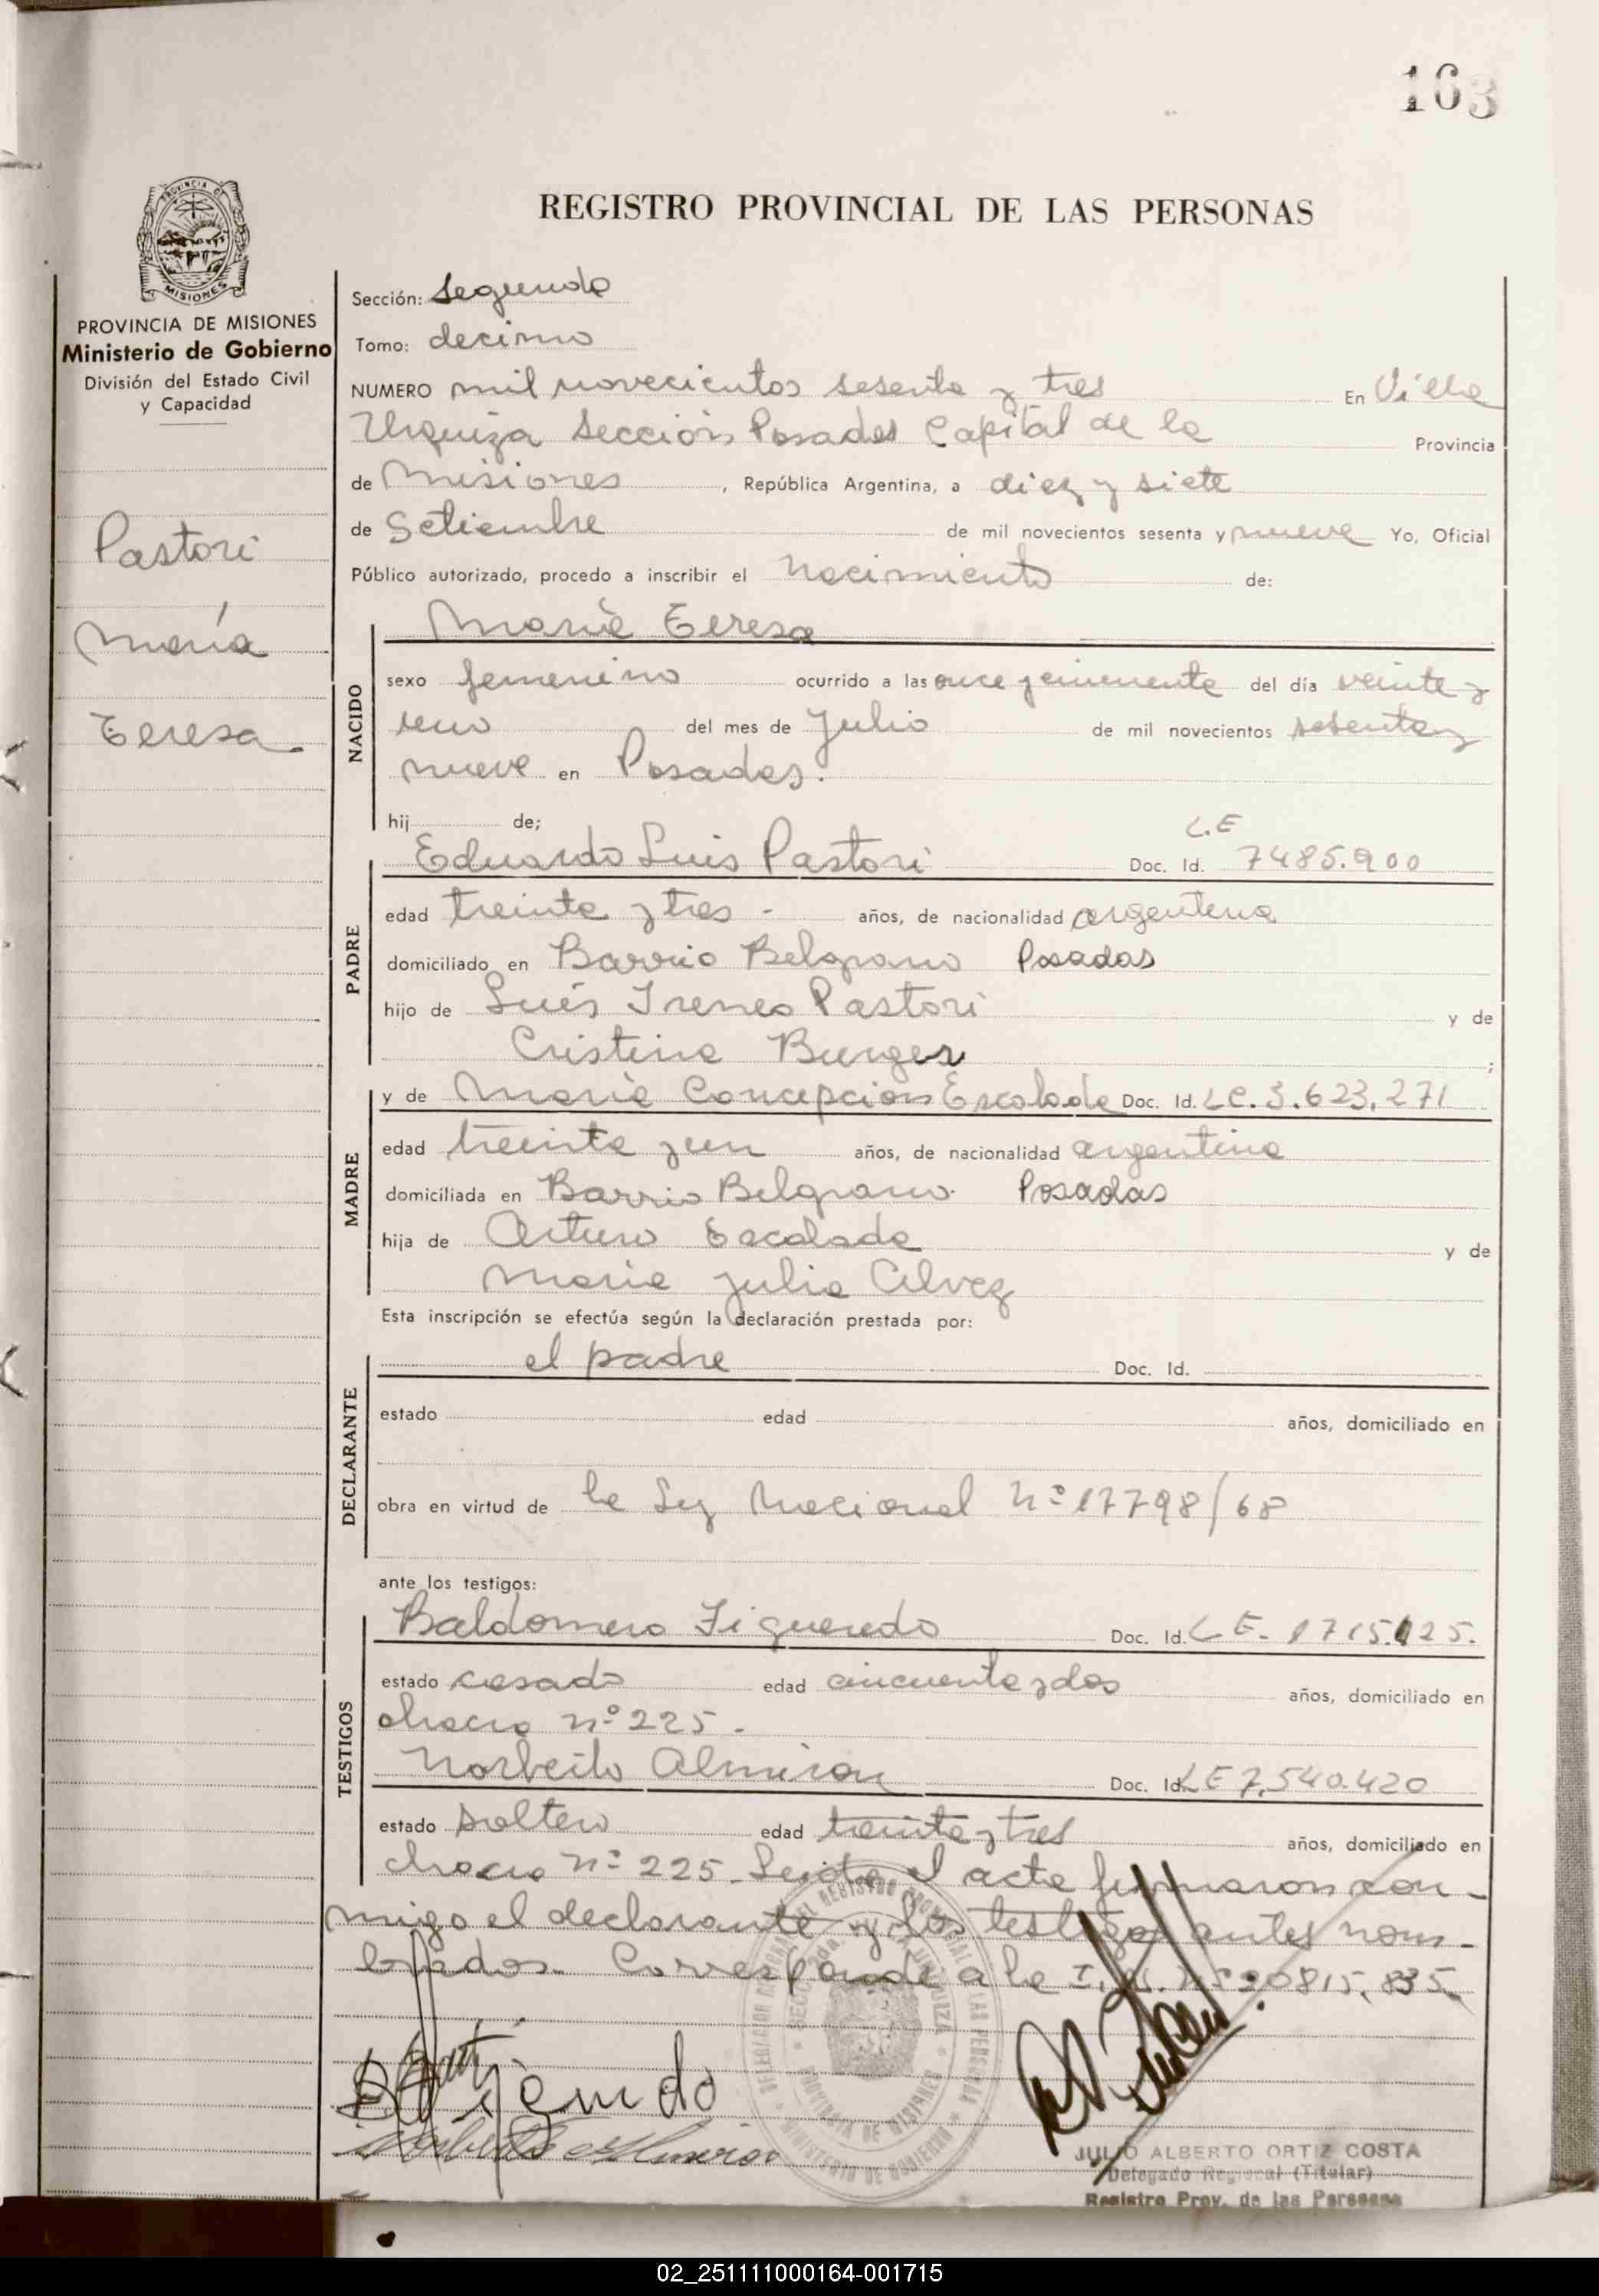 163
PROVINCIA DE MISIONES
PROVINCIA DE MISIONES
Ministerio de Gobierno
División del Estado Civil
y Capacidad
Pastori
María
Teresa
REGISTRO PROVINCIAL DE LAS PERSONAS
Sección: Segunda
Tomo: decimo
NUMERO mil novecientos sesenta y tres En Villa
Urquiza Sección Posadas Capital de la Provincia
de Misiones, República Argentina, a diez y siete
de Setiembre de mil novecientos sesenta y nueve Yo, Oficial
Público autorizado, procedo a inscribir el Nacimiento de:
NACIDO
María Teresa
sexo femenino ocurrido a las once y cincuenta del día veinte y
uno del mes de Julio de mil novecientos sesenta y
nueve en Posadas.
hij de;
L.E
PADRE
Eduardo Luis Pastori Doc. Id. 7485.900
edad treinta y tres - años, de nacionalidad argentina
domiciliado en Barrio Belgrano Posadas
hijo de Luis Ireneo Pastori y de
Cristina Burger ;
MADRE
y de María Concepcion Escalada Doc. Id. LC. 3.623.271
edad treinta y un años, de nacionalidad argentina
domiciliada en Barrio Belgrano. Posadas
hija de Arturo Escalada y de
Maria Julia Alvez
Esta inscripción se efectúa según la declaración prestada por:
DECLARANTE
el padre Doc. Id.
estado edad años, domiciliado en
obra en virtud de la Ley Nacional Nº 17798/68
ante los testigos:
TESTIGOS
Baldomero Figueredo Doc. Id. L E. 1715.125.
estado casado edad cincuenta y dos años, domiciliado en
chacra nº 225.
Norberto Almiron Doc. Id. LE 7.540.420
estado soltero edad treinta y tres años, domiciliado en
chacra nº 225. Leida el acta firmaron con-
migo el declarante y los testigos antes nom-
brados. Corresponde a la I.N. Nº 20815.835.
JULIO ALBERTO ORTIZ COSTA
Delegado Regional (Titular)
Registro Prov. de las Personas
02_251111000164-001715